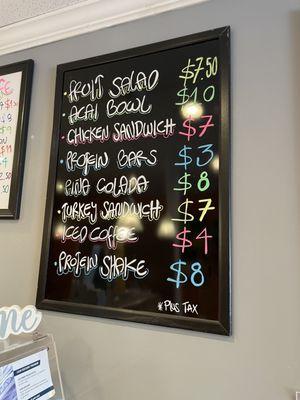 • FRUIT SALAD $7.50
• ACAI BOWL $10
• CHICKEN SANDWICH $7
• PROTEIN BARS $3
• PINA COLADA $8
• TURKEY SANDWICH $7
• ICED COFFEE $4
• PROTEIN SHAKE $8
* PLUS TAX